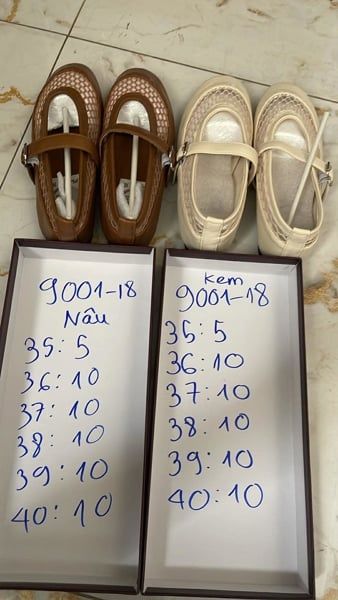 9001-18
Nâu
35: 5
36: 10
37: 10
38: 10
39: 10
40: 10
Kem
9001-18
35: 5
36: 10
37: 10
38: 10
39: 10
40: 10